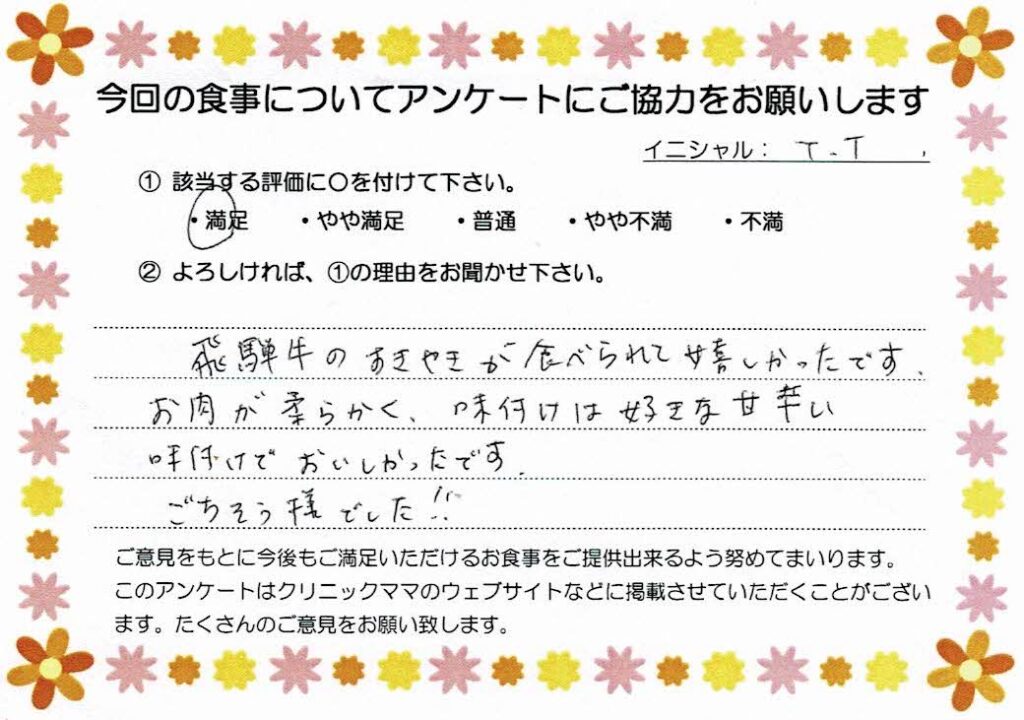 今回の食事についてアンケートにご協力をお願いします
イニシャル： T.T
① 該当する評価に〇を付けて下さい。
・満足 ・やや満足 ・普通 ・やや不満 ・不満
② よろしければ、①の理由をお聞かせ下さい。
飛騨牛のすきやきが食べられて嬉しかったです。
お肉が柔らかく、味付けは好きな甘辛い
味付けでおいしかったです。
ごちそう様でした!!
ご意見をもとに今後もご満足いただけるお食事をご提供出来るよう努めてまいります。
このアンケートはクリニックママのウェブサイトなどに掲載させていただくことがござい
ます。たくさんのご意見をお願い致します。